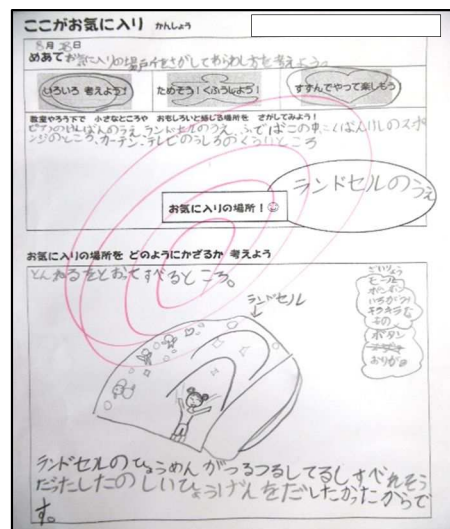 ここがお気に入り かんしょう
8月28日
めあて お気に入りの場所をさがしてあらわし方を考えよう。
いろいろ 考えよう!
ためそう!くふうしよう!
すすんでやって楽しもう
教室やろう下で 小さなところや おもしろいと感じる場所を さがしてみよう!
ピアノのけんばんのうえ、ランドセルのうえ、ふでばこの中、こくばんけしのスポ
ンジのところ、カーテン、テレビのうしろのくらいところ
ランドセルのうえ
お気に入りの場所!
お気に入りの場所を どのようにかざるか 考えよう
とんねるをとおってすべるところ。
ざいりょう
モール
ボンボン
キラキラな
もの
ボタン
おりがみ
ランドセル
ランドセルのひょうめんがつるつるしてるしすべれそう
だったしたのしいひょうげんをだしたかったからで
す。